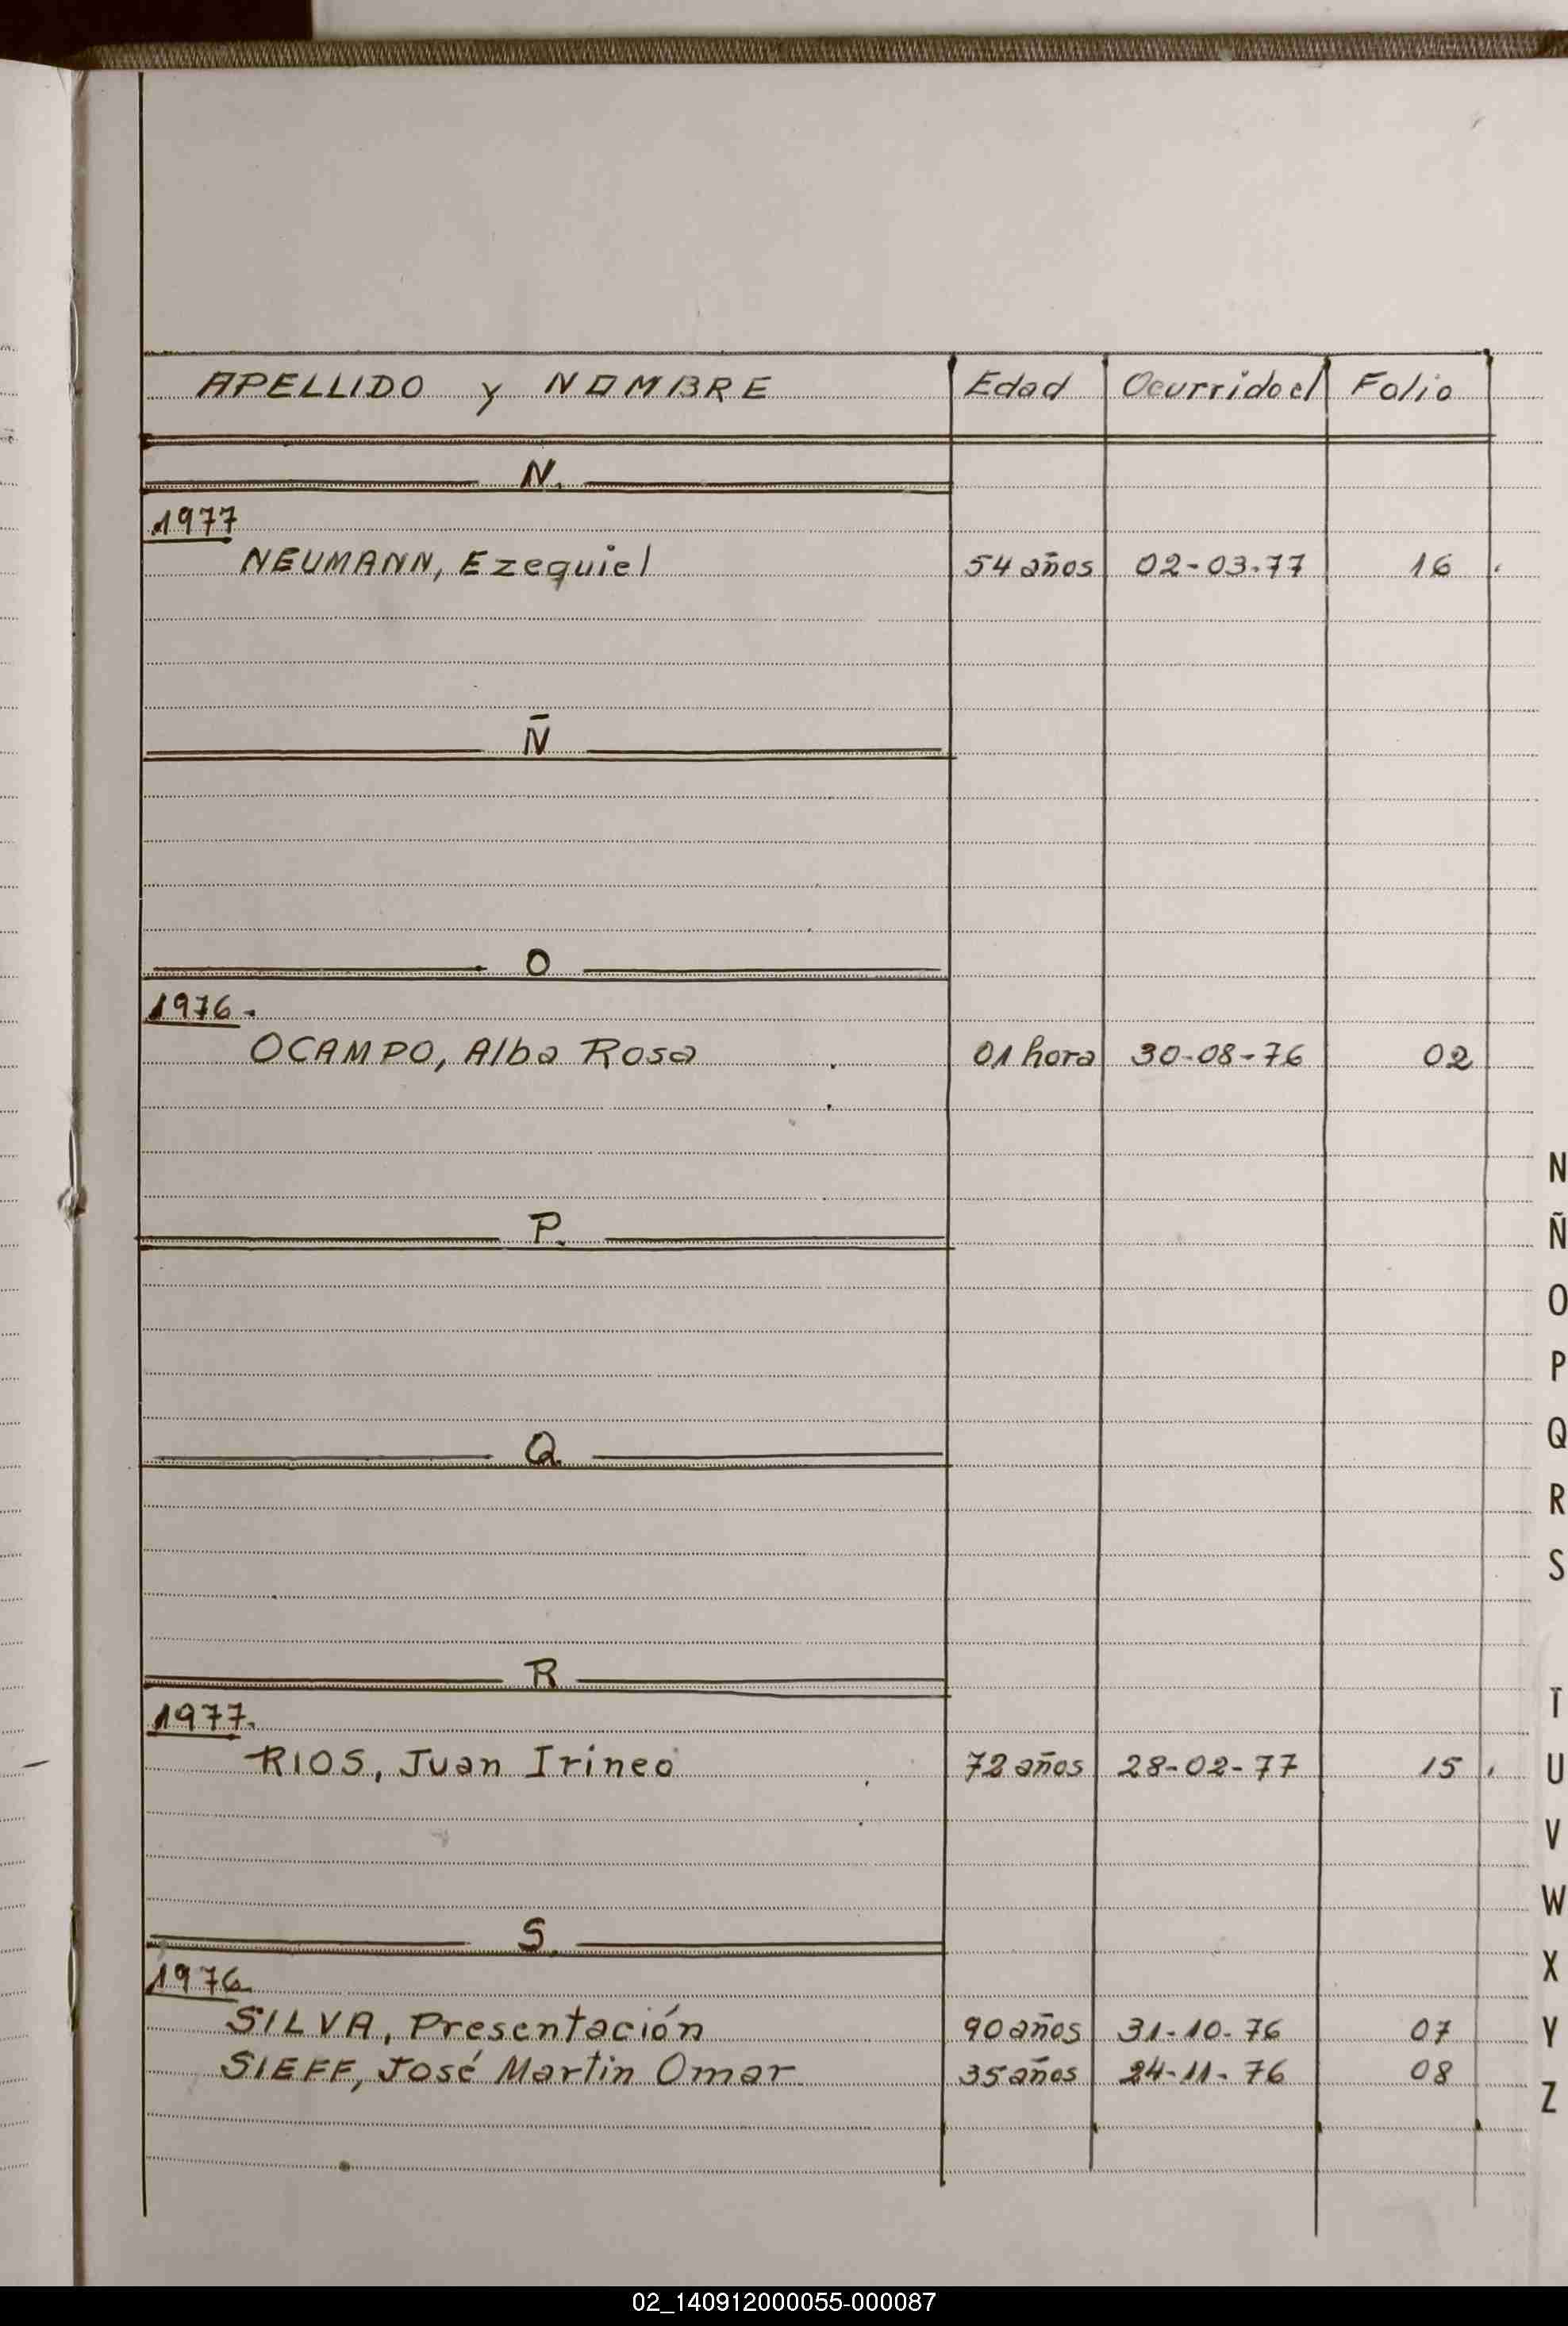 APELLIDO y NOMBRE Edad Ocurrido el Folio
N.
1977
NEUMANN, Ezequiel 54 años 02-03-77 16
Ñ
O
1976.
OCAMPO, Alba Rosa 01 hora 30-08-76 02
P.
Q.
R
1977.
RIOS, Juan Irineo 72 años 28-02-77 15
S.
1976
SILVA, Presentación 90 años 31-10-76 07
SIEFF, José Martin Omar 35 años 24-11-76 08
N
Ñ
O
P
Q
R
S
T
U
V
W
X
Y
Z
02_140912000055-000087